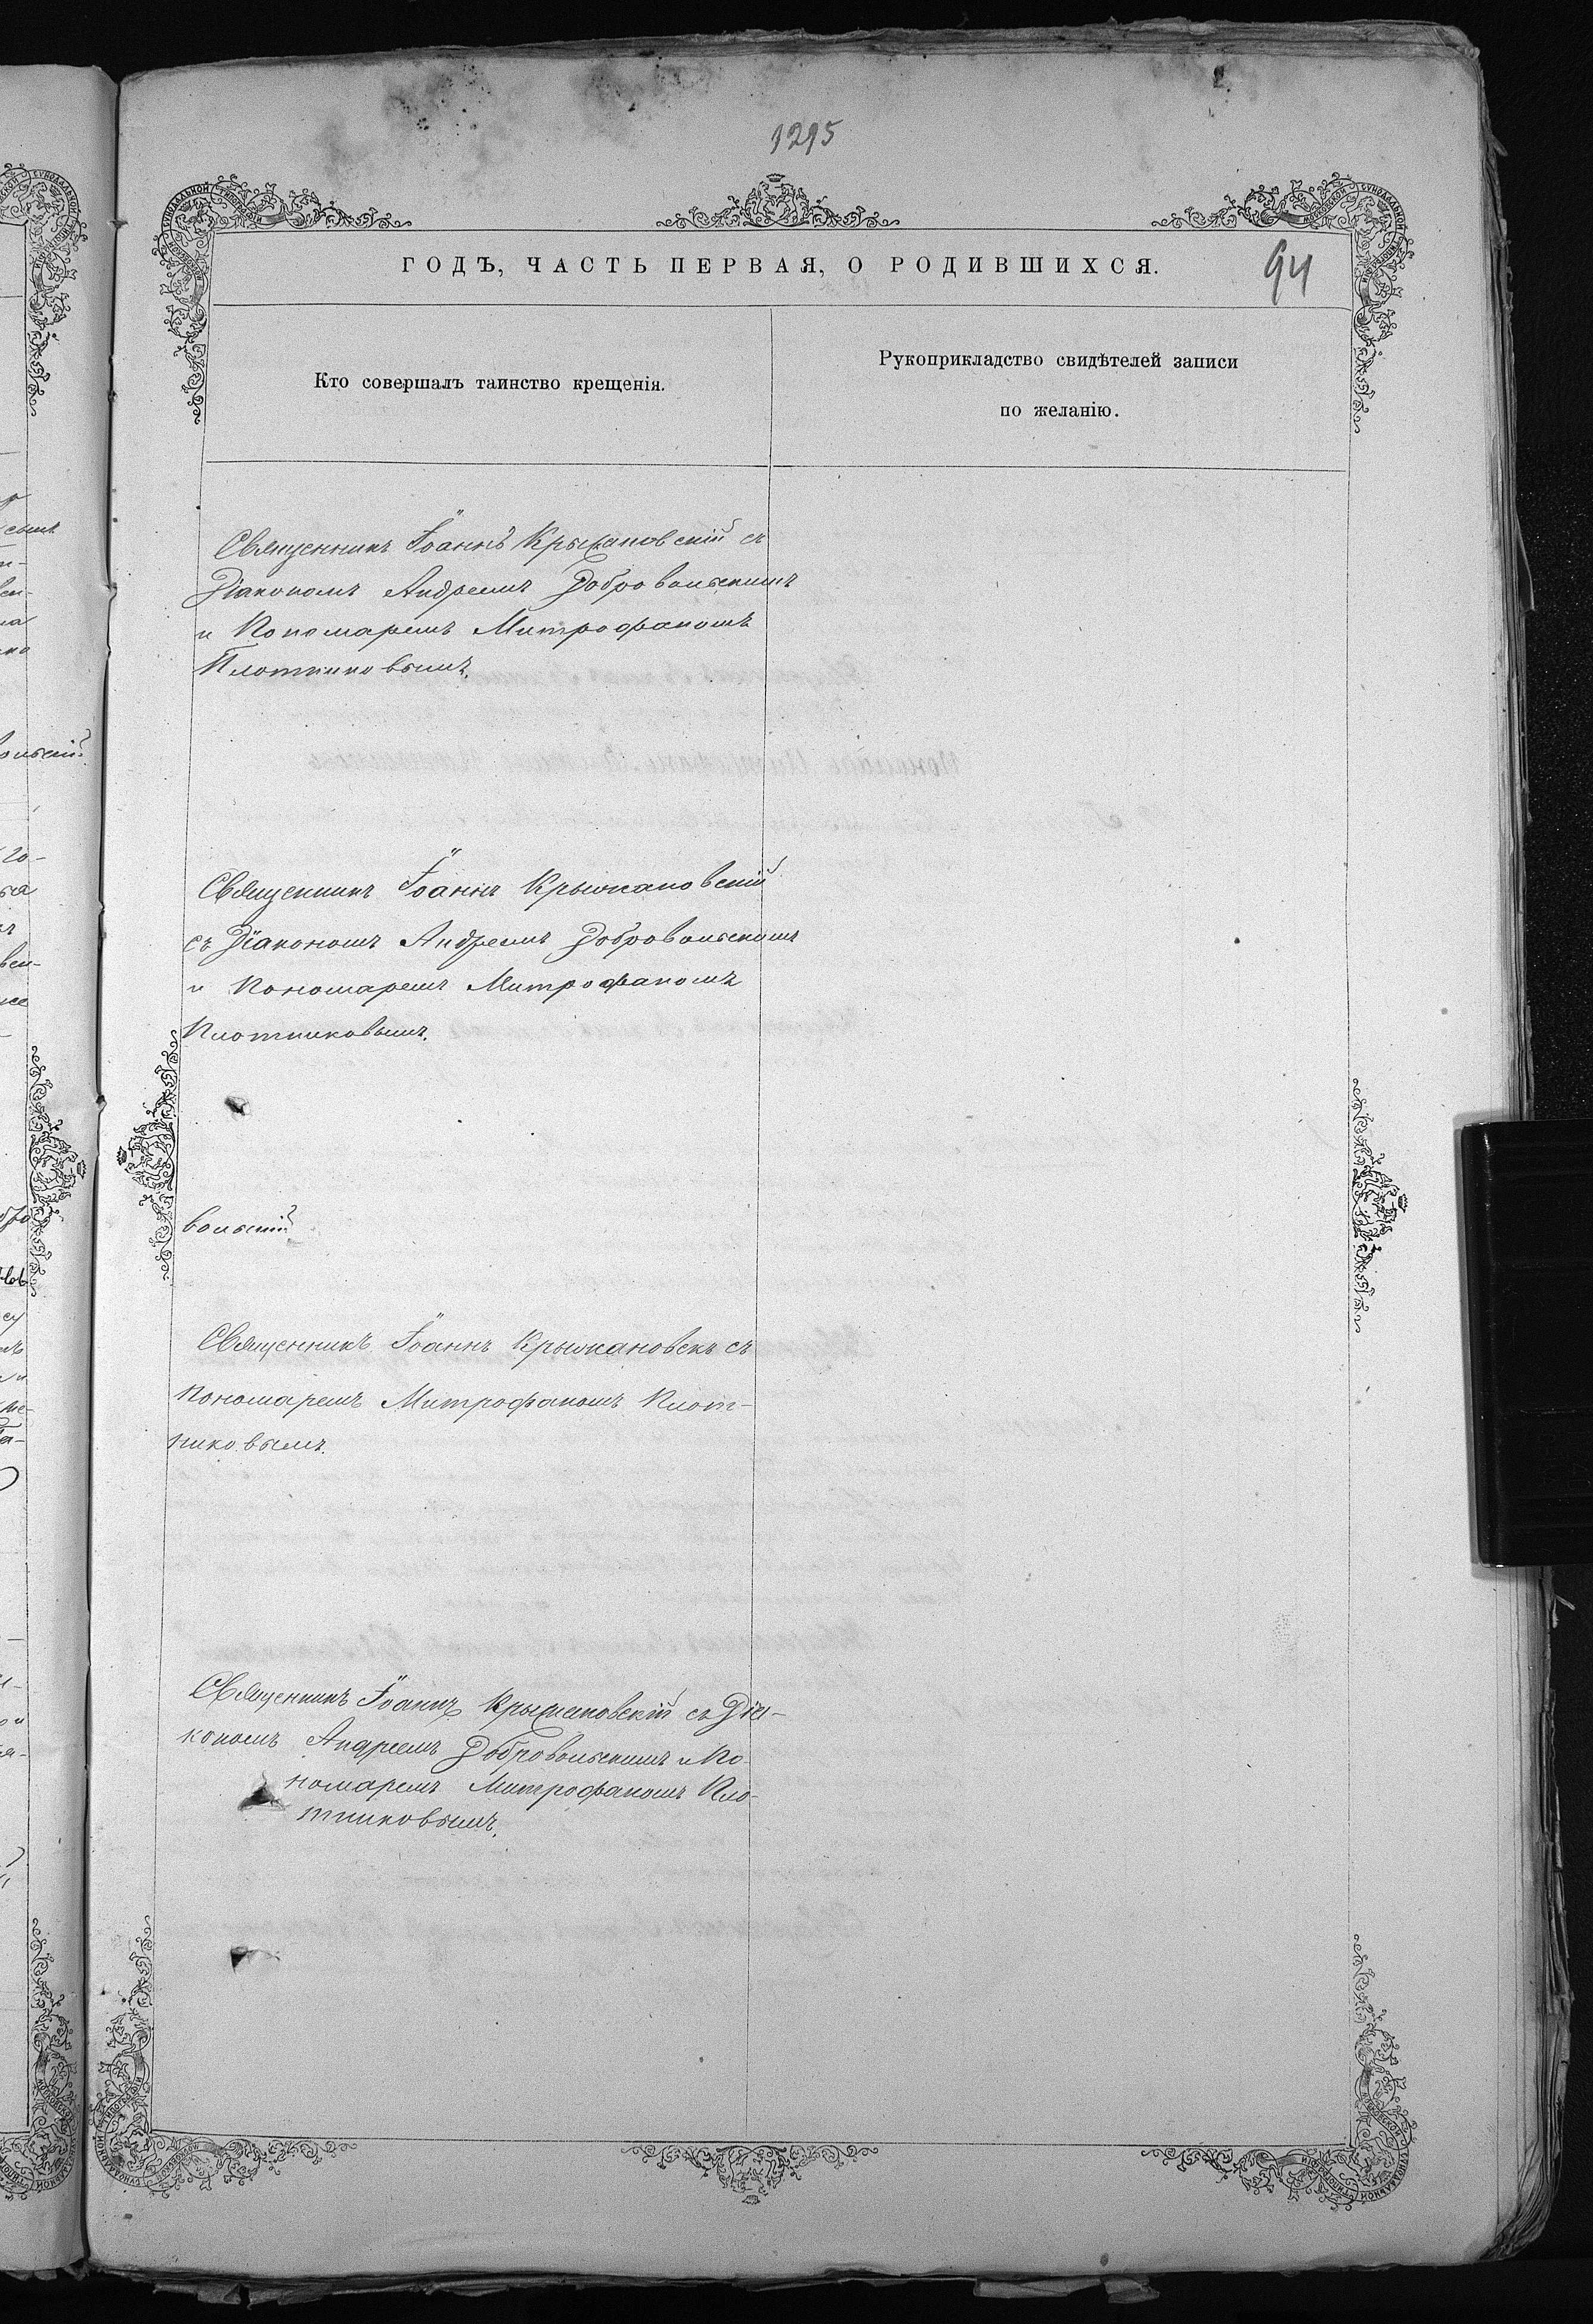 1215
ГОДЪ, ЧАСТЬ ПЕРВАЯ, О РОДИВШИХСЯ.
94
Кто совершалъ таинство крещенія.
Рукоприкладство свидѣтелей записи
по желанію.
Священникъ Іоаннъ Крыжановскій съ
Діакономъ Андреемъ Добровольскимъ
и Пономаремъ Митрофаномъ
Плотниковымъ.
Священникъ Іоаннъ Крыжановскій
съ Діакономъ Андреемъ Добровольскимъ
и Пономаремъ Митрофаномъ
Плотниковымъ.
вольскій
Священникъ Іоаннъ Крыжановскъ съ
Пономаремъ Митрофаномъ Плот-
никовымъ.
Священникъ Іоаннъ Крыжановскій съ Діа-
кономъ Андреемъ Добровольскимъ и По-
номаремъ Митрофаномъ Пло-
тниковымъ.